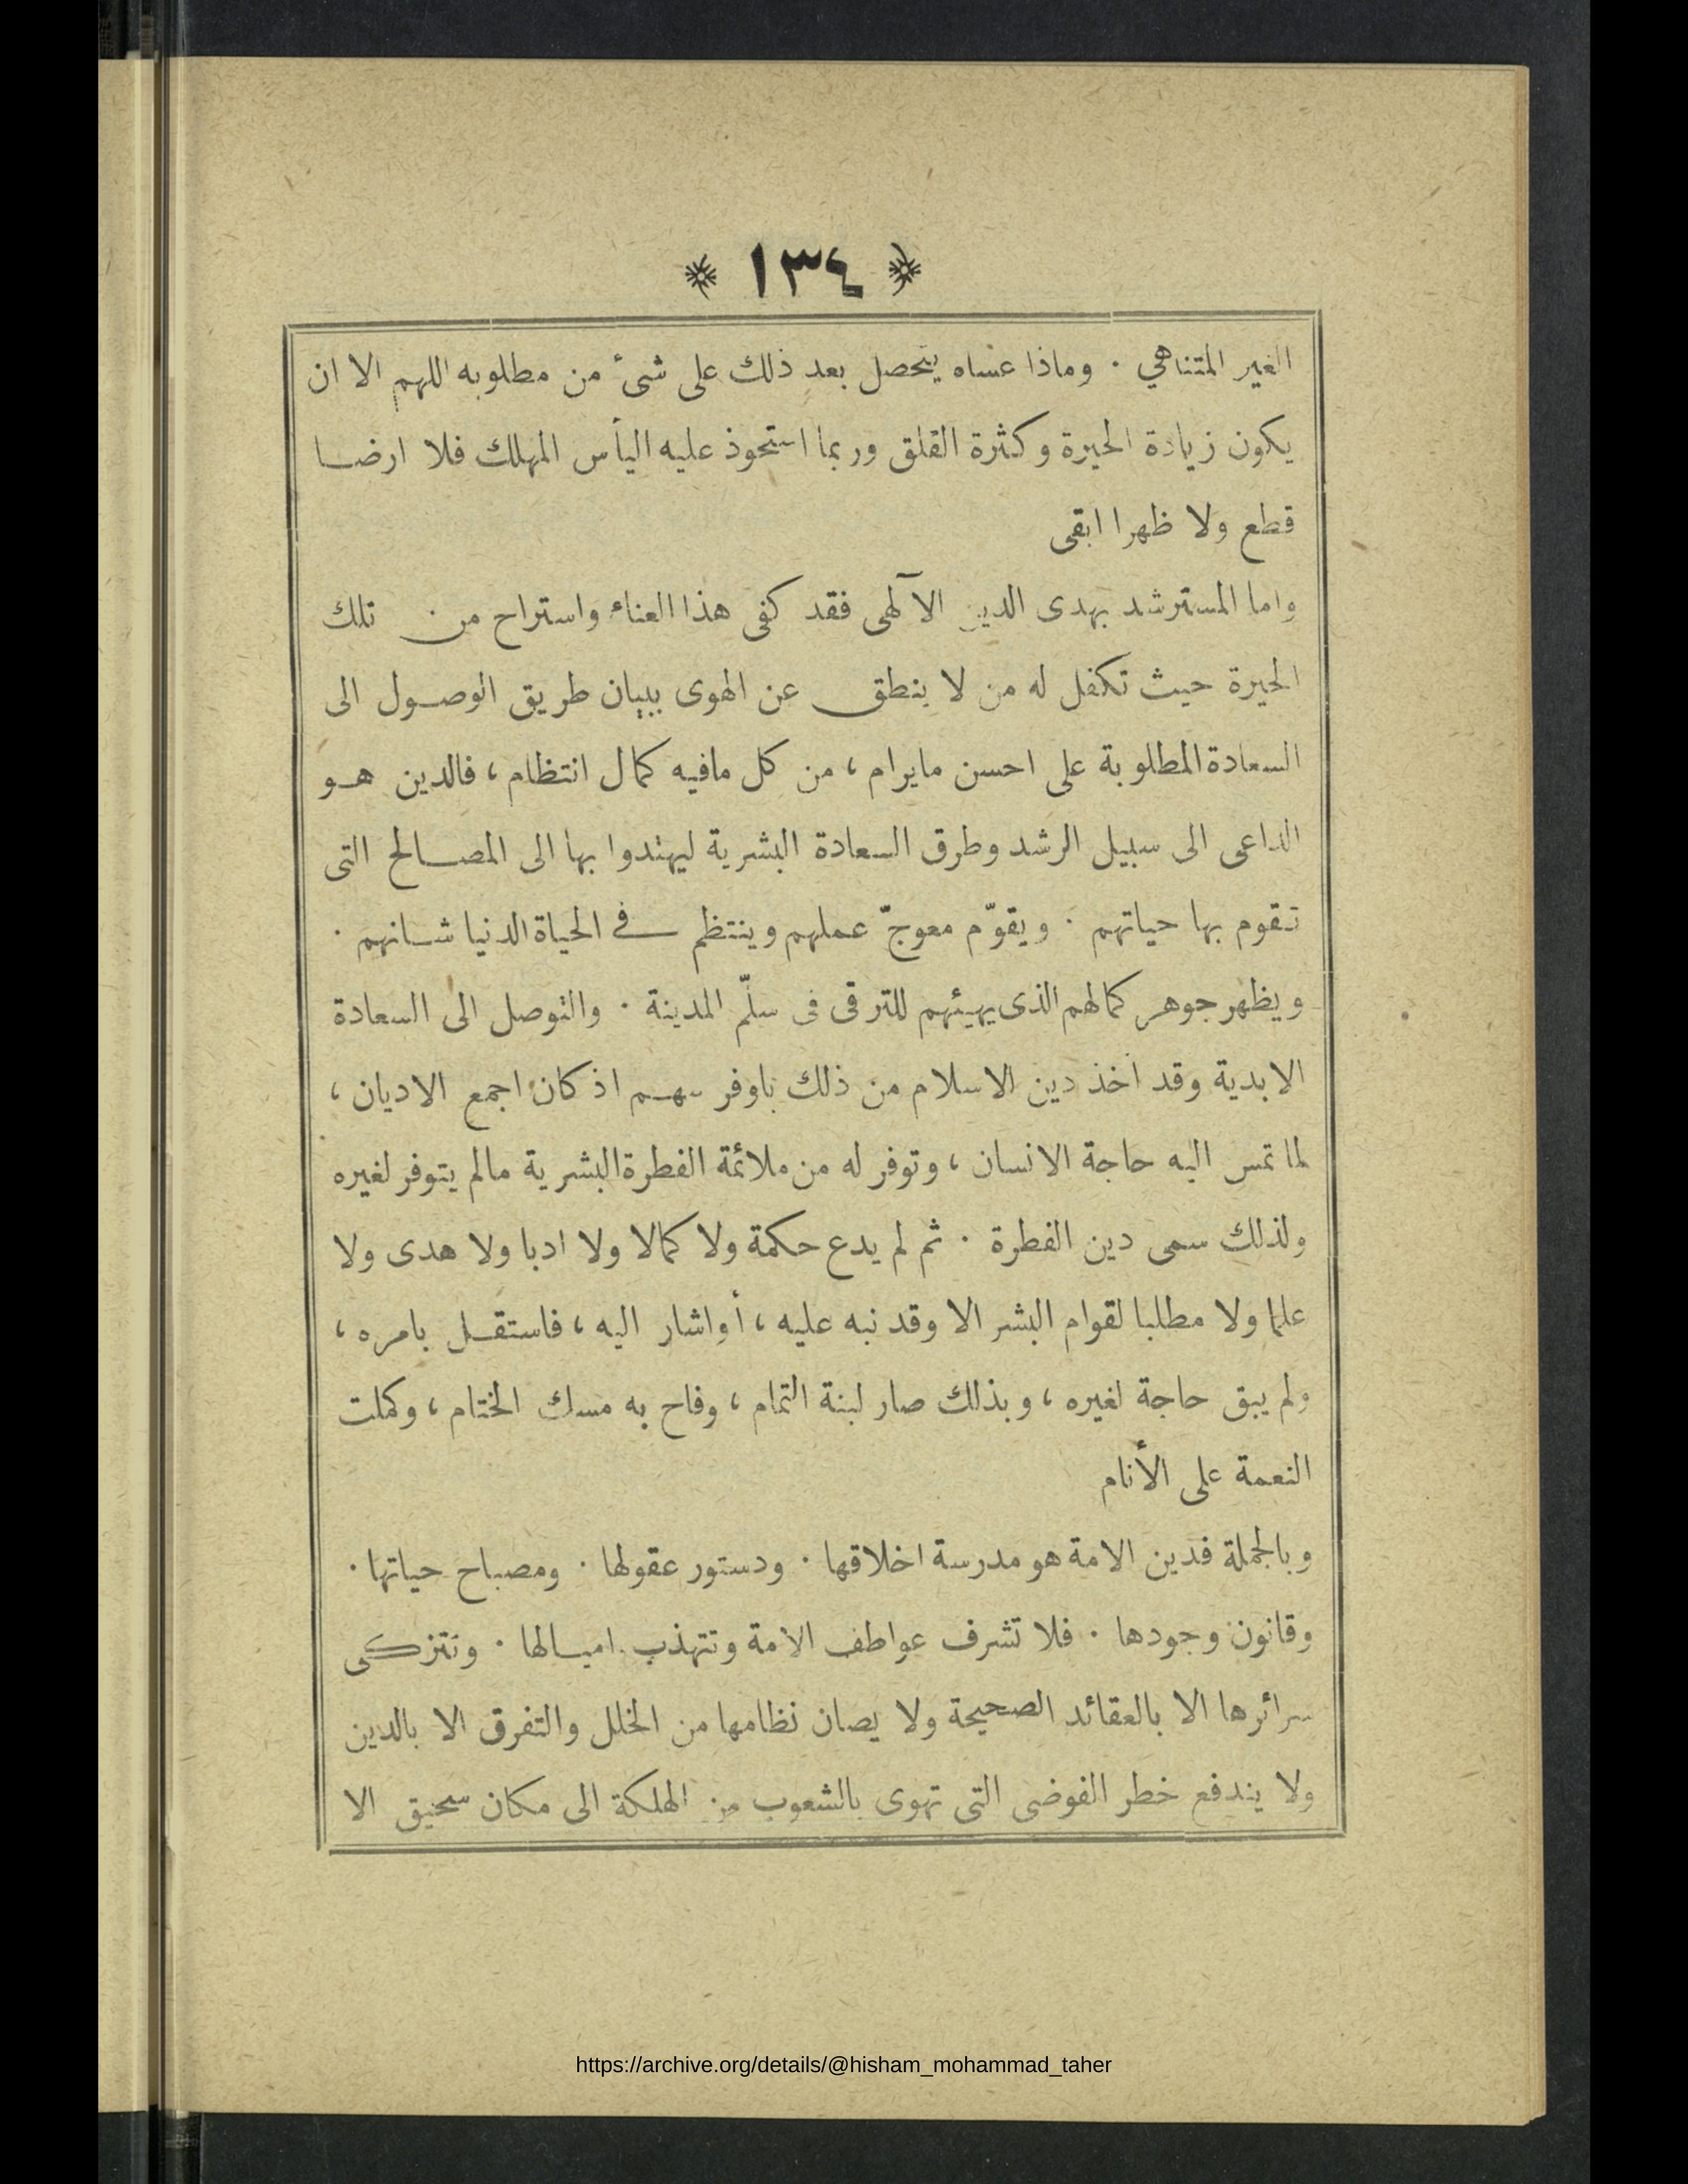 ﴿ ١٣٤ ﴾
الغير المتناهي . وماذا عساه يتحصل بعد ذلك على شئ من مطلوبه اللهم الا ان
يكون زيادة الحيرة وكثرة القلق وربما استحوذ عليه اليأس المهلك فلا ارضا
قطع ولا ظهرا ابقى
واما المسترشد بهدى الدين الآلهى فقد كفى هذا العناء واستراح من تلك
الحيرة حيث تكفل له من لا ينطق عن الهوى ببيان طريق الوصول الى
السعادة المطلوبة على احسن مايرام ، من كل مافيه كمال انتظام ، فالدين هو
الداعى الى سبيل الرشد وطرق السعادة البشرية ليهتدوا بها الى المصالح التى
تقوم بها حياتهم . ويقوّم معوجّ عملهم وينتظم في الحياة الدنيا شانهم .
ويظهر جوهر كمالهم الذى يهيئهم للترقى فى سلّم المدينة . والتوصل الى السعادة
الابدية وقد أخذ دين الاسلام من ذلك باوفر سهم اذ كان اجمع الاديان ،
لما تمس اليه حاجة الانسان ، وتوفر له من ملائمة الفطرة البشرية مالم يتوفر لغيره
ولذلك سمى دين الفطرة . ثم لم يدع حكمة ولا كمالا ولا ادبا ولا هدى ولا
علما ولا مطلبا لقوام البشر الا وقد نبه عليه ، أو اشار اليه ، فاستقل بامره ،
ولم يبق حاجة لغيره ، وبذلك صار لبنة التمام ، وفاح به مسك الختام ، وكملت
النعمة على الأنام
وبالجملة فدين الامة هو مدرسة اخلاقها . ودستور عقولها . ومصباح حياتها .
وقانون وجودها . فلا تشرف عواطف الامة وتتهذب اميالها . وتتزكى
سرائرها الا بالعقائد الصحيحة ولا يصان نظامها من الخلل والتفرق الا بالدين
ولا يندفع خطر الفوضى التى تهوى بالشعوب من الهلكة الى مكان سحيق الا
https://archive.org/details/@hisham_mohammad_taher